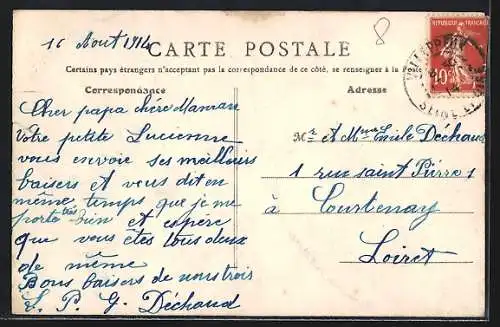 16 Aout 1914
8
CARTE POSTALE
Certains pays étrangers n'acceptant pas la correspondance de ce côté, se renseigner à la
Correspondance
Adresse
RÉPUBLIQUE FRANÇAISE
10
Cher papa chère Maman
Votre petite Lucienne
vous envoie ses meilleurs
baisers et vous dit en
même temps que je me
porte très bien et espère
que vous êtes tous deux
de même
Bons baisers de nous trois
L. P. G. Déchaud
Mr et Mme Emile Dechaud
1 rue saint Pierre 1
à Courtenay
Loiret